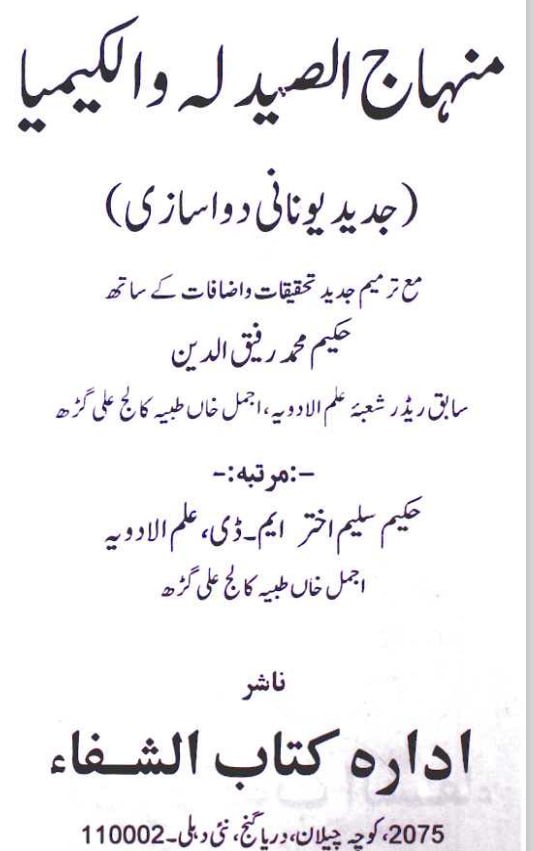 منہاج الصیدلہ والکیمیا
(جدید یونانی دواسازی)
مع ترمیم جدید تحقیقات واضافات کے ساتھ
حکیم محمد رفیق الدین
سابق ریڈر شعبۂ علم الادویہ، اجمل خاں طبیہ کالج علی گڑھ
-:مرتبہ:-
حکیم سلیم اختر ایم۔ڈی، علم الادویہ
اجمل خاں طبیہ کالج علی گڑھ
ناشر
ادارہ کتاب الشفاء
2075، کوچہ چیلان، دریا گنج، نئی دہلی۔110002